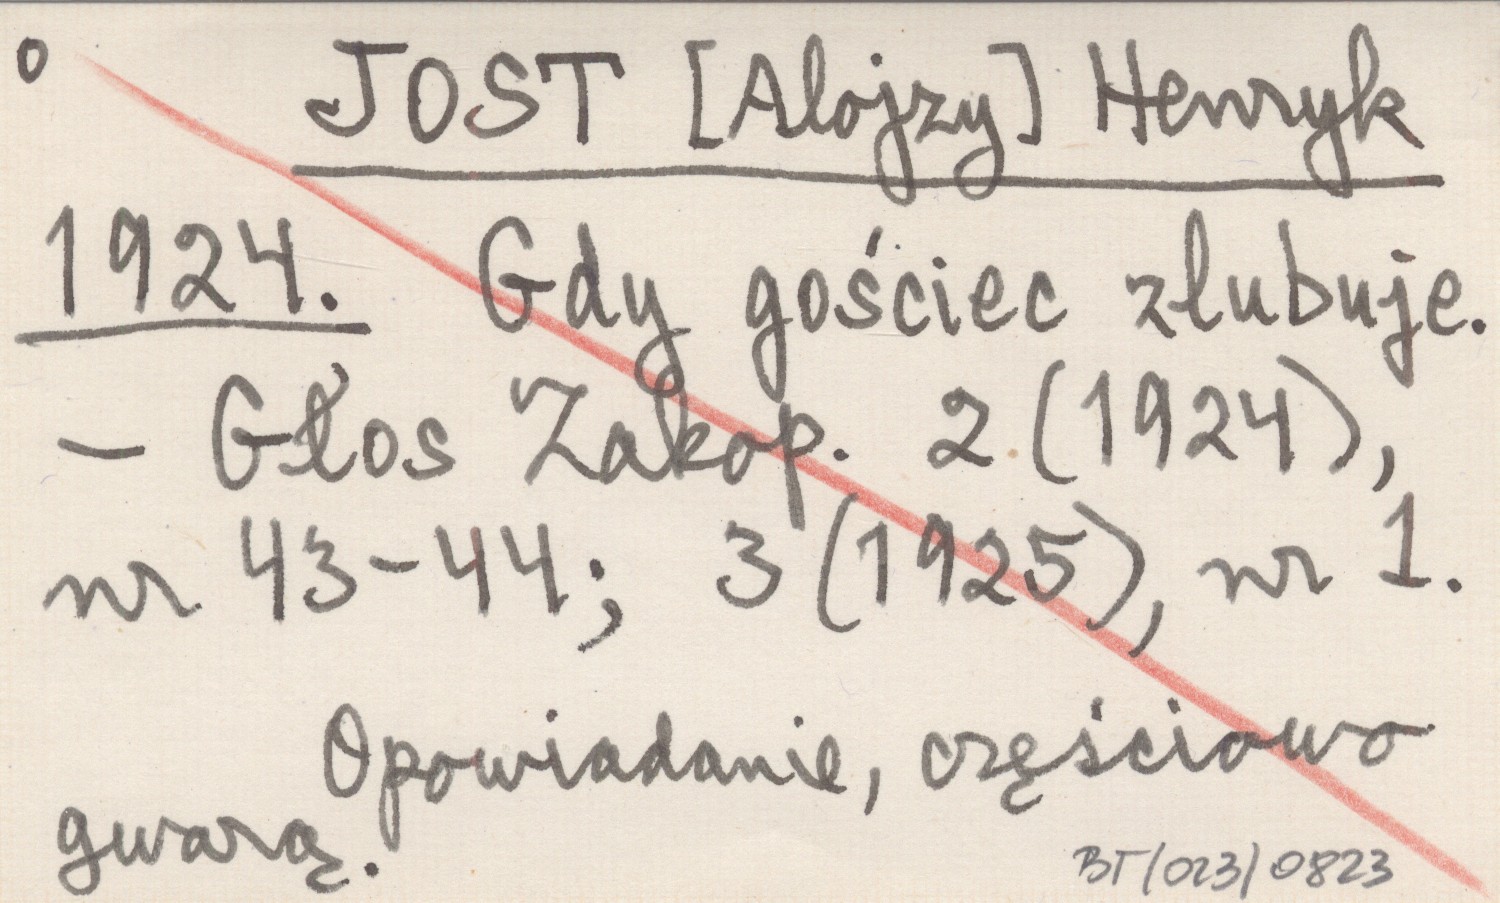 0 JOST [Alojzy] Henryk
1924. Gdy gościec złubuje.
– Głos Zakop. 2 (1924),
nr 43-44; 3 (1925), nr 1.
Opowiadanie, częściowo
gwarą.
BT/023/0823